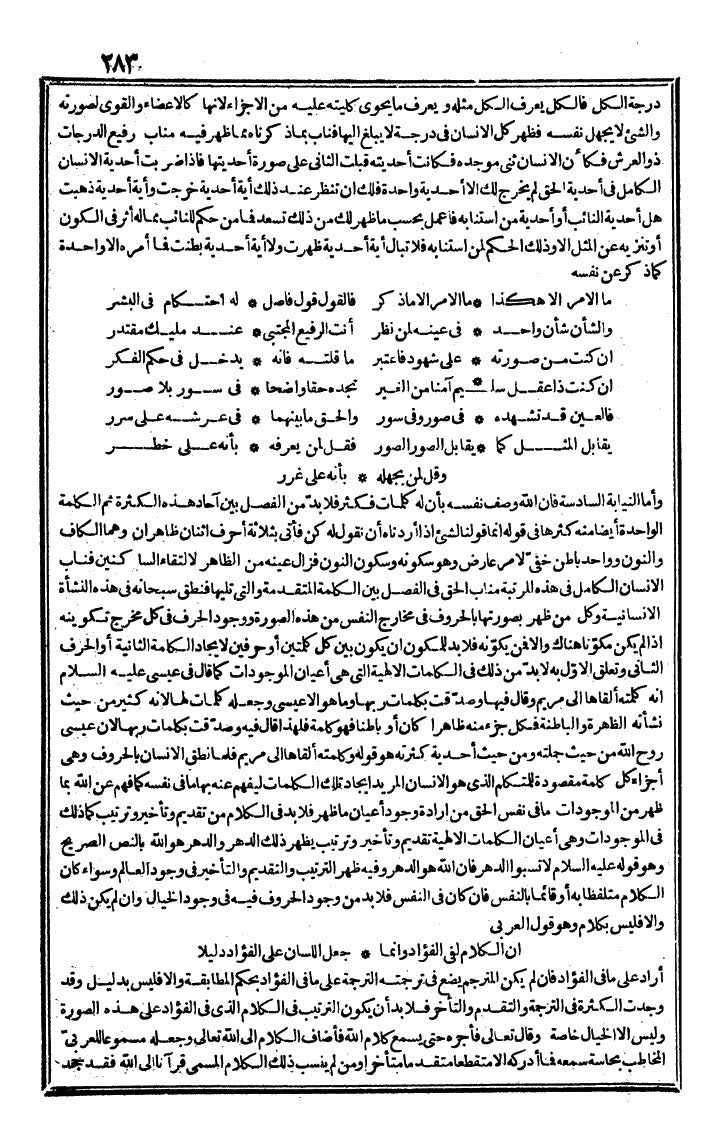 ٢٨٣
درجة الكل فالكل يعرف الكل مثله و يعرف ما يحوى كليته عليه من الاجزاء لانها كالاعضاء والقوى لصورته
والشئ لا يجهل نفسه فظهر كل الانسان فى درجة لا يبلغ اليها فناب بماذ كرناه بما ظهر فيه مناب رفيع الدرجات
ذو العرش فكأن الانسان ثنى موجده فكانت أحديته قبلت الثانى على صورة أحديتها فاذا ضربت أحدية الانسان
الكامل فى أحدية الحق لم يخرج لك الا أحدية واحدة فلك ان تنظر عند ذلك أية أحدية خرجت وأية أحدية ذهبت
هل أحدية النائب أو أحدية من استنابه فاعمل بحسب ما ظهر لك من ذلك تسعد فما من حكم للنائب بماله أثر فى الكون
أو تنزيه عن المثل الا وذلك الحكم لمن استنابه فلا تبال أية أحدية ظهرت ولا أية أحدية بطنت فما أمره الا واحدة
كماذ كر عن نفسه
ما الامر الا هكذا * ما الامر الا ماذ كر فالقول قول فاصل * له احتكام فى البشر
والشأن شأن واحد * فى عينه لمن نظر أنت الرفيع المجتبى * عند مليك مقتدر
ان كنت من صورته * على شهود فاعتبر ما قلته فانه * يدخل فى حكم الفكر
ان كنت ذا عقل سليم * آمنا من الغير تجده حقا واضحا * فى سور بلا صور
فالعين قد تشهده * فى صور وفى سور والحق ما بينهما * فى عرشه على سرر
يقابل المثل كما * يقابل الصور الصور فقل لمن يعرفه * بأنه على خطر
وقل لمن يجهله * بأنه على غرر
وأما النيابة السادسة فان الله وصف نفسه بأن له كلمات فكثر فلا بد من الفصل بين آحاد هذه الكثرة ثم الكلمة
الواحدة أيضا منه كثرها فى قوله انما قولنا لشئ اذا أردناه أن نقول له كن فأتى بثلاثة أحرف اثنان ظاهران وهما الكاف
والنون وواحد باطن خفى لامر عارض وهو سكونه وسكون النون فزال عينه من الظاهر لالتقاء السا كنين فناب
الانسان الكامل فى هذه المرتبة مناب الحق فى الفصل بين الكلمة المتقدمة والتى تليها فنطق سبحانه فى هذه النشأة
الانسانية وكل من ظهر بصورتها بالحروف فى مخارج النفس من هذه الصورة ووجود الحرف فى كل مخرج تكوينه
اذا لم يكن مكونا هناك والا فمن يكونه فلا بد للمكون ان يكون بين كل كلمتين أو حرفين لايجاد الكلمة الثانية أو الحرف
الثانى وتعلق الاول به لا بد من ذلك فى الكلمات الالهية التى هى أعيان الموجودات كما قال فى عيسى عليه السلام
انه كلمته ألقاها الى مريم وقال فيها وصدقت بكلمات ربها وما هو الا عيسى وجعله كلمات لها لانه كثير من حيث
نشأته الظهرة والباطنة فكل جزء منه ظاهرا كان أو باطنا فهو كلمة فلهذا قال فيه وصدقت بكلمات ربها لان عيسى
روح الله من حيث جملته ومن حيث أحدية كثرته هو قوله وكلمته ألقاها الى مريم فلما نطق الانسان بالحروف وهى
أجزاء كل كلمة مقصودة للمتكلم الذى هو الانسان المريد ايجاد تلك الكلمات ليفهم عنه بها ما فى نفسه كما فهم عن الله بما
ظهر من الموجودات ما فى نفس الحق من ارادة وجود أعيان ما ظهر فلا بد فى الكلام من تقديم وتأخير وترتيب كما ذلك
فى الموجودات وهى أعيان الكلمات الالهية تقديم وتأخير وترتيب يظهر ذلك الدهر والدهر هو الله بالنص الصريح
وهو قوله عليه السلام لا تسبوا الدهر فان الله هو الدهر وفيه ظهر الترتيب والتقديم والتأخير فى وجود العالم وسواء كان
الكلام متلفظا به أو قائما بالنفس فان كان فى النفس فلا بد من وجود الحروف فيه فى وجود الخيال وان لم يكن ذلك
والا فليس بكلام وهو قول العربى
ان الكلام لفى الفؤاد وانما * جعل اللسان على الفؤاد دليلا
أراد على ما فى الفؤاد فان لم يكن المترجم يضع فى ترجمته الترجمة على ما فى الفؤاد بحكم المطابقة والا فليس بدليل وقد
وجدت الكثرة فى الترجمة والتقدم والتأخر فلا بد أن يكون الترتيب فى الكلام الذى فى الفؤاد على هذه الصورة
وليس الا الخيال خاصة وقال تعالى فأجره حتى يسمع كلام الله فأضاف الكلام الى الله تعالى وجعله مسموعا للعربى
المخاطب بحاسة سمعه فما أدركه الا متقطعا متقدما متأخرا ومن لم ينسب ذلك الكلام المسمى قرآنا الى الله فقد جحد